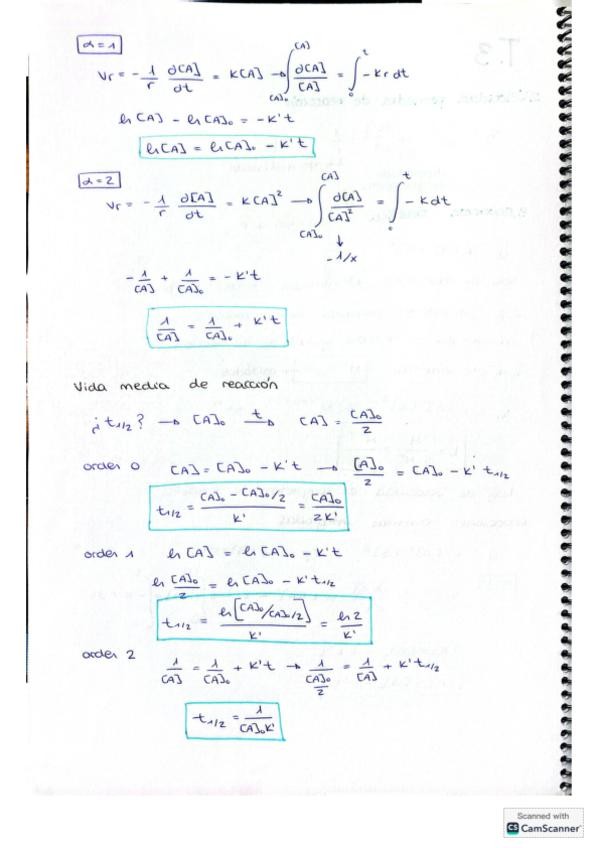 α = 1
Vr = - 1/r ∂[A]/∂t = K[A] → ∫_{[A]₀}^{[A]} ∂[A]/[A] = ∫_0^t - Kr dt
ln [A] - ln [A]₀ = - K't
ln [A] = ln [A]₀ - K't
α = 2
Vr = - 1/r ∂[A]/∂t = K[A]² → ∫_{[A]₀}^{[A]} ∂[A]/[A]² = ∫_0^t - K dt
↓
- 1/x
- 1/[A] + 1/[A]₀ = - K't
1/[A] = 1/[A]₀ + K't
Vida media de reacción
¿t1/2? → [A]₀ —t→ [A] = [A]₀/2
orden 0 [A] = [A]₀ - K't → [A]₀/2 = [A]₀ - K' t1/2
t1/2 = ([A]₀ - [A]₀/2)/K' = [A]₀/2K'
orden 1 ln [A] = ln [A]₀ - K't
ln [A]₀/2 = ln [A]₀ - K't1/2
t1/2 = ln[[A]₀/[A]₀/2]/K' = ln 2/K'
orden 2 1/[A] = 1/[A]₀ + K't → 1/([A]₀/2) = 1/[A] + K't1/2
t1/2 = 1/[A]₀K'
Scanned with
CS CamScanner